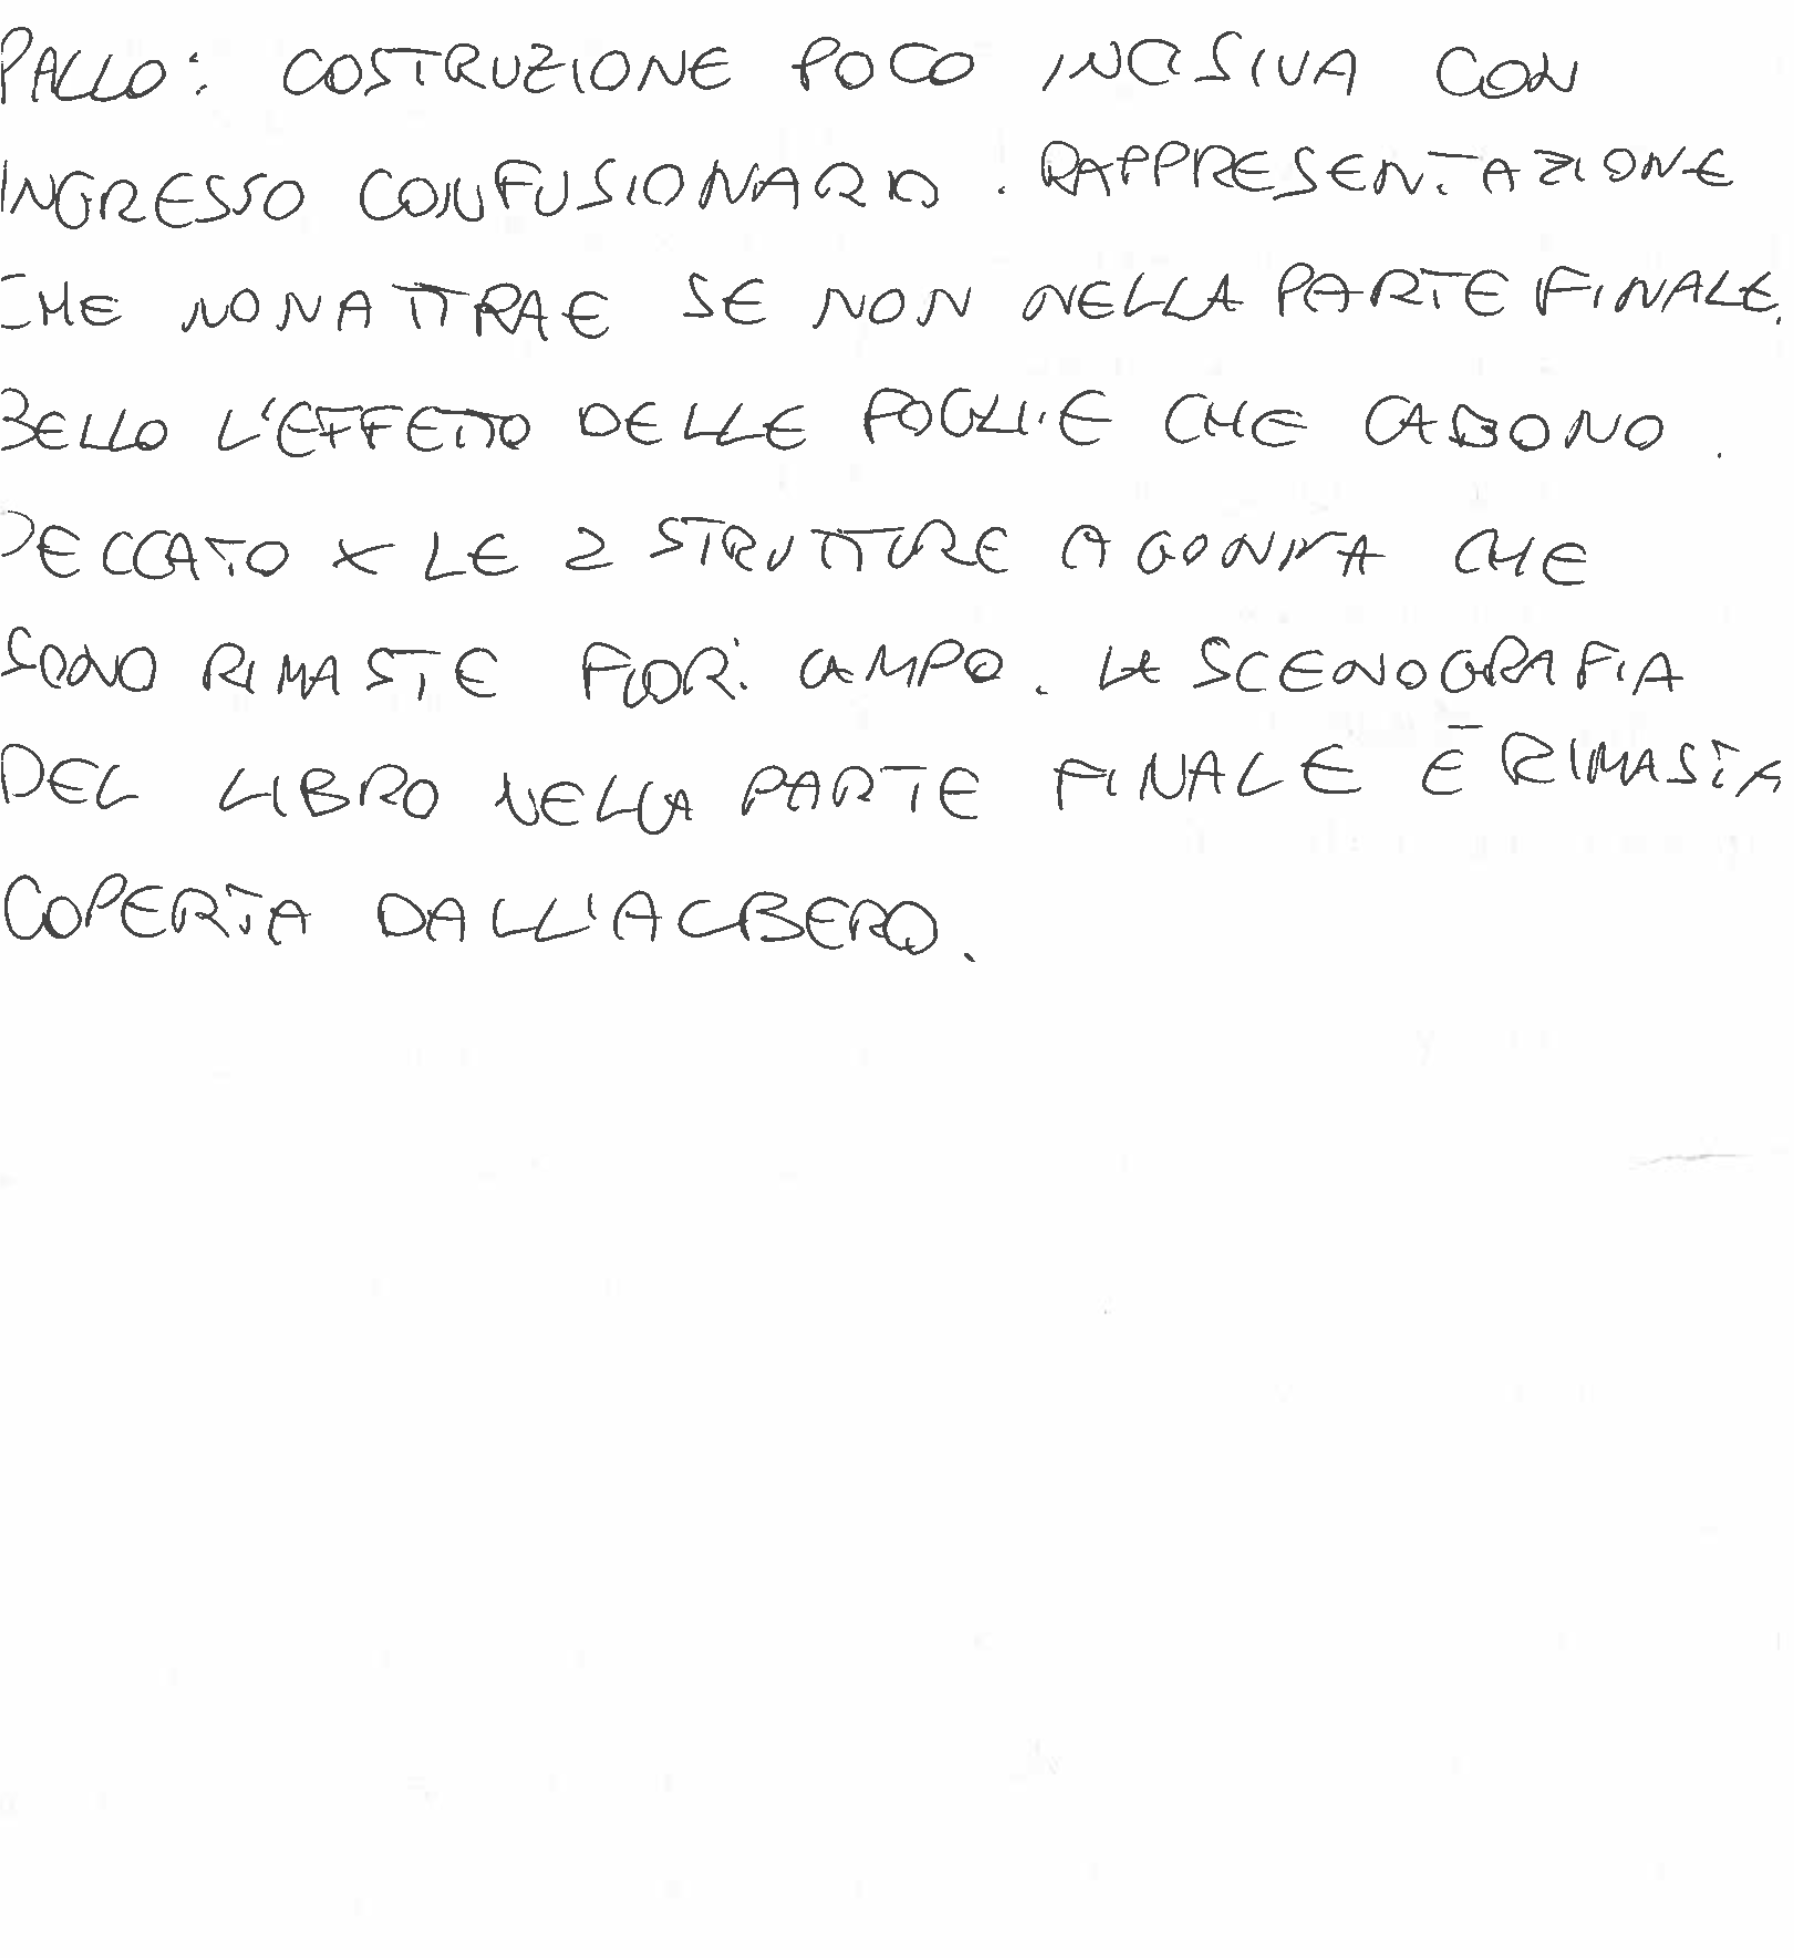 PALLO: COSTRUZIONE POCO INCISIVA CON
INGRESSO CONFUSIONARIO. RAPPRESENTAZIONE
CHE NON ATTRAE SE NON NELLA PARTE FINALE.
BELLO L'EFFETTO DELLE FOGLIE CHE CADONO.
PECCATO X LE 2 STRUTTURE A GONNA CHE
SONO RIMASTE FUORI CAMPO. LA SCENOGRAFIA
DEL LIBRO NELLA PARTE FINALE È RIMASTA
COPERTA DALL'ALBERO.